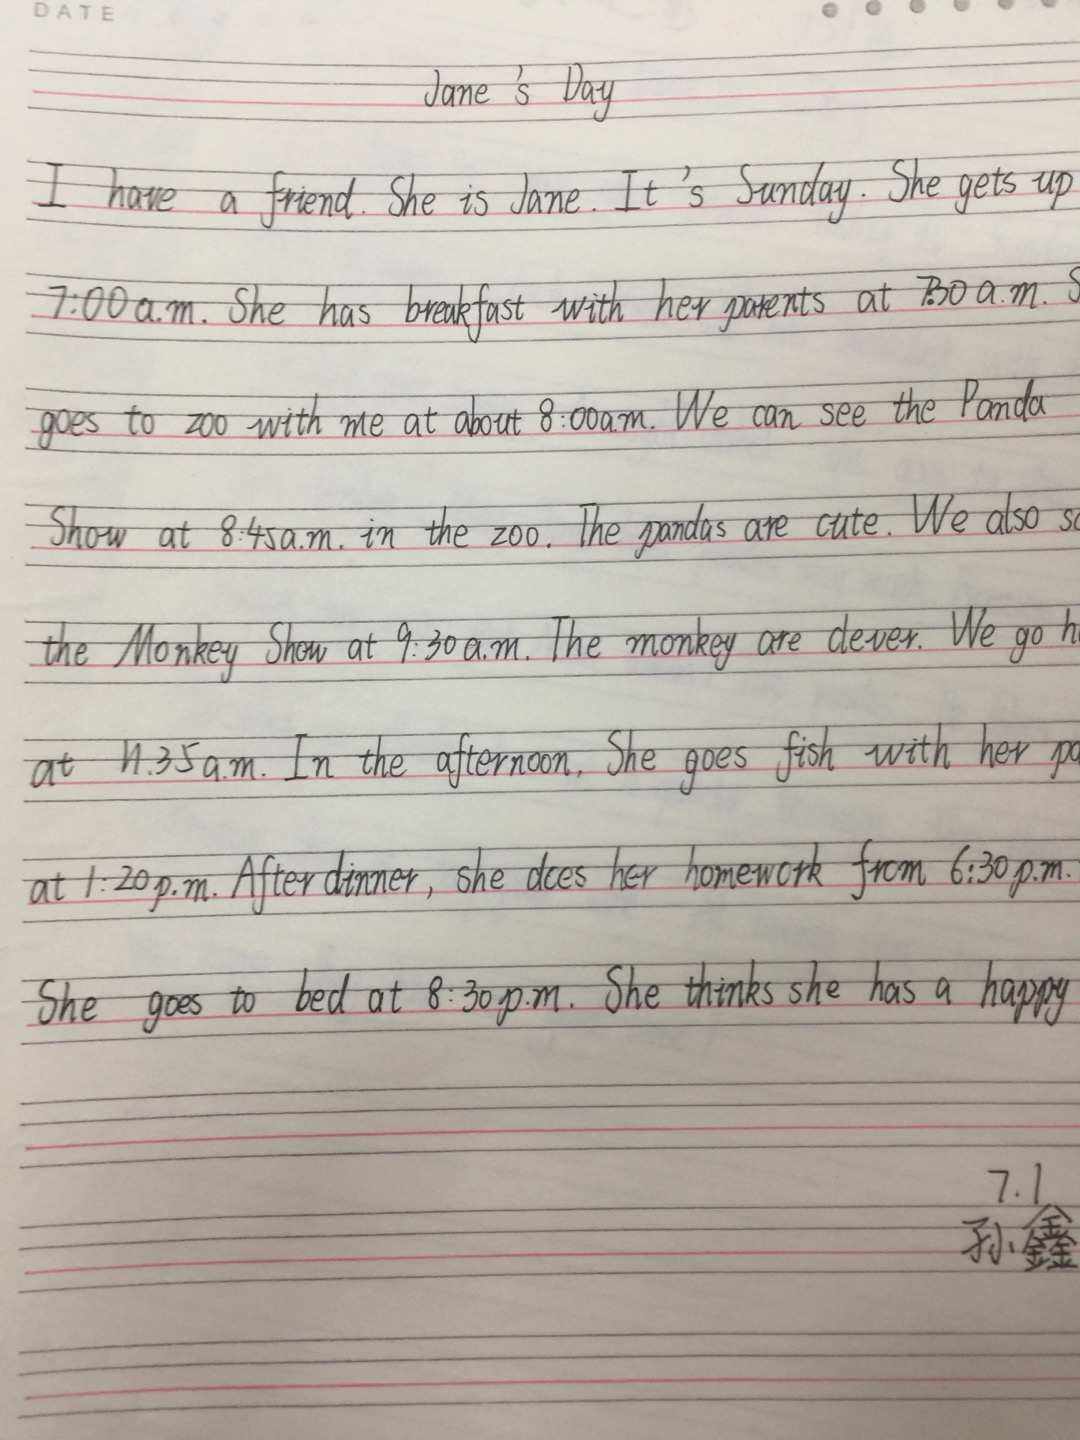 DATE
Jane's Day
I have a friend. She is Jane. It's Sunday. She gets up
7:00a.m. She has breakfast with her parents at 7:30 a.m. S
goes to zoo with me at about 8:00a.m. We can see the Panda
Show at 8:45a.m. in the zoo. The pandas are cute. We also
the Monkey Show at 9:30 a.m. The monkey are clever. We go h
at 11.35 a.m. In the afternoon, She goes fish with her pa
at 1:20p.m. After dinner, she does her homework from 6:30 p.m.
She goes to bed at 8:30p.m. She thinks she has a happy
7.1
孙鑫